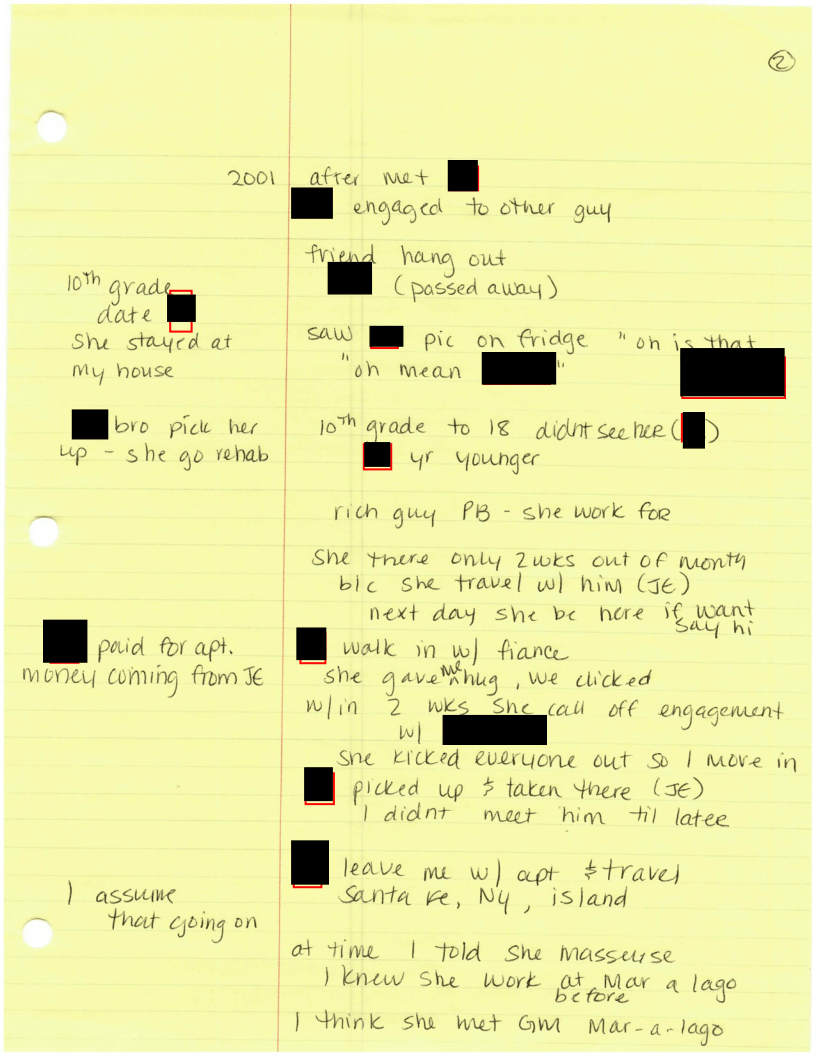 2
2001 after met
engaged to other guy
friend hang out
(passed away)
10th grade
date
she stayed at
my house
saw pic on fridge "oh is that
"oh mean "
bro pick her
up - she go rehab
10th grade to 18 didnt see her ( )
yr younger
rich guy PB - she work for
she there only 2 wks out of month
b/c she travel w/ him (JE)
next day she be here if want
say hi
paid for apt.
money coming from JE
walk in w/ fiance
she gave me hug, we clicked
w/in 2 wks she call off engagement
w/
she kicked everyone out so I move in
picked up & taken there (JE)
I didnt meet him til later
leave me w/ apt & travel
Santa Fe, NY, island
I assume
that going on
at time I told she masseuse
I knew she work at Mar a lago
before
I think she met GM Mar-a-lago